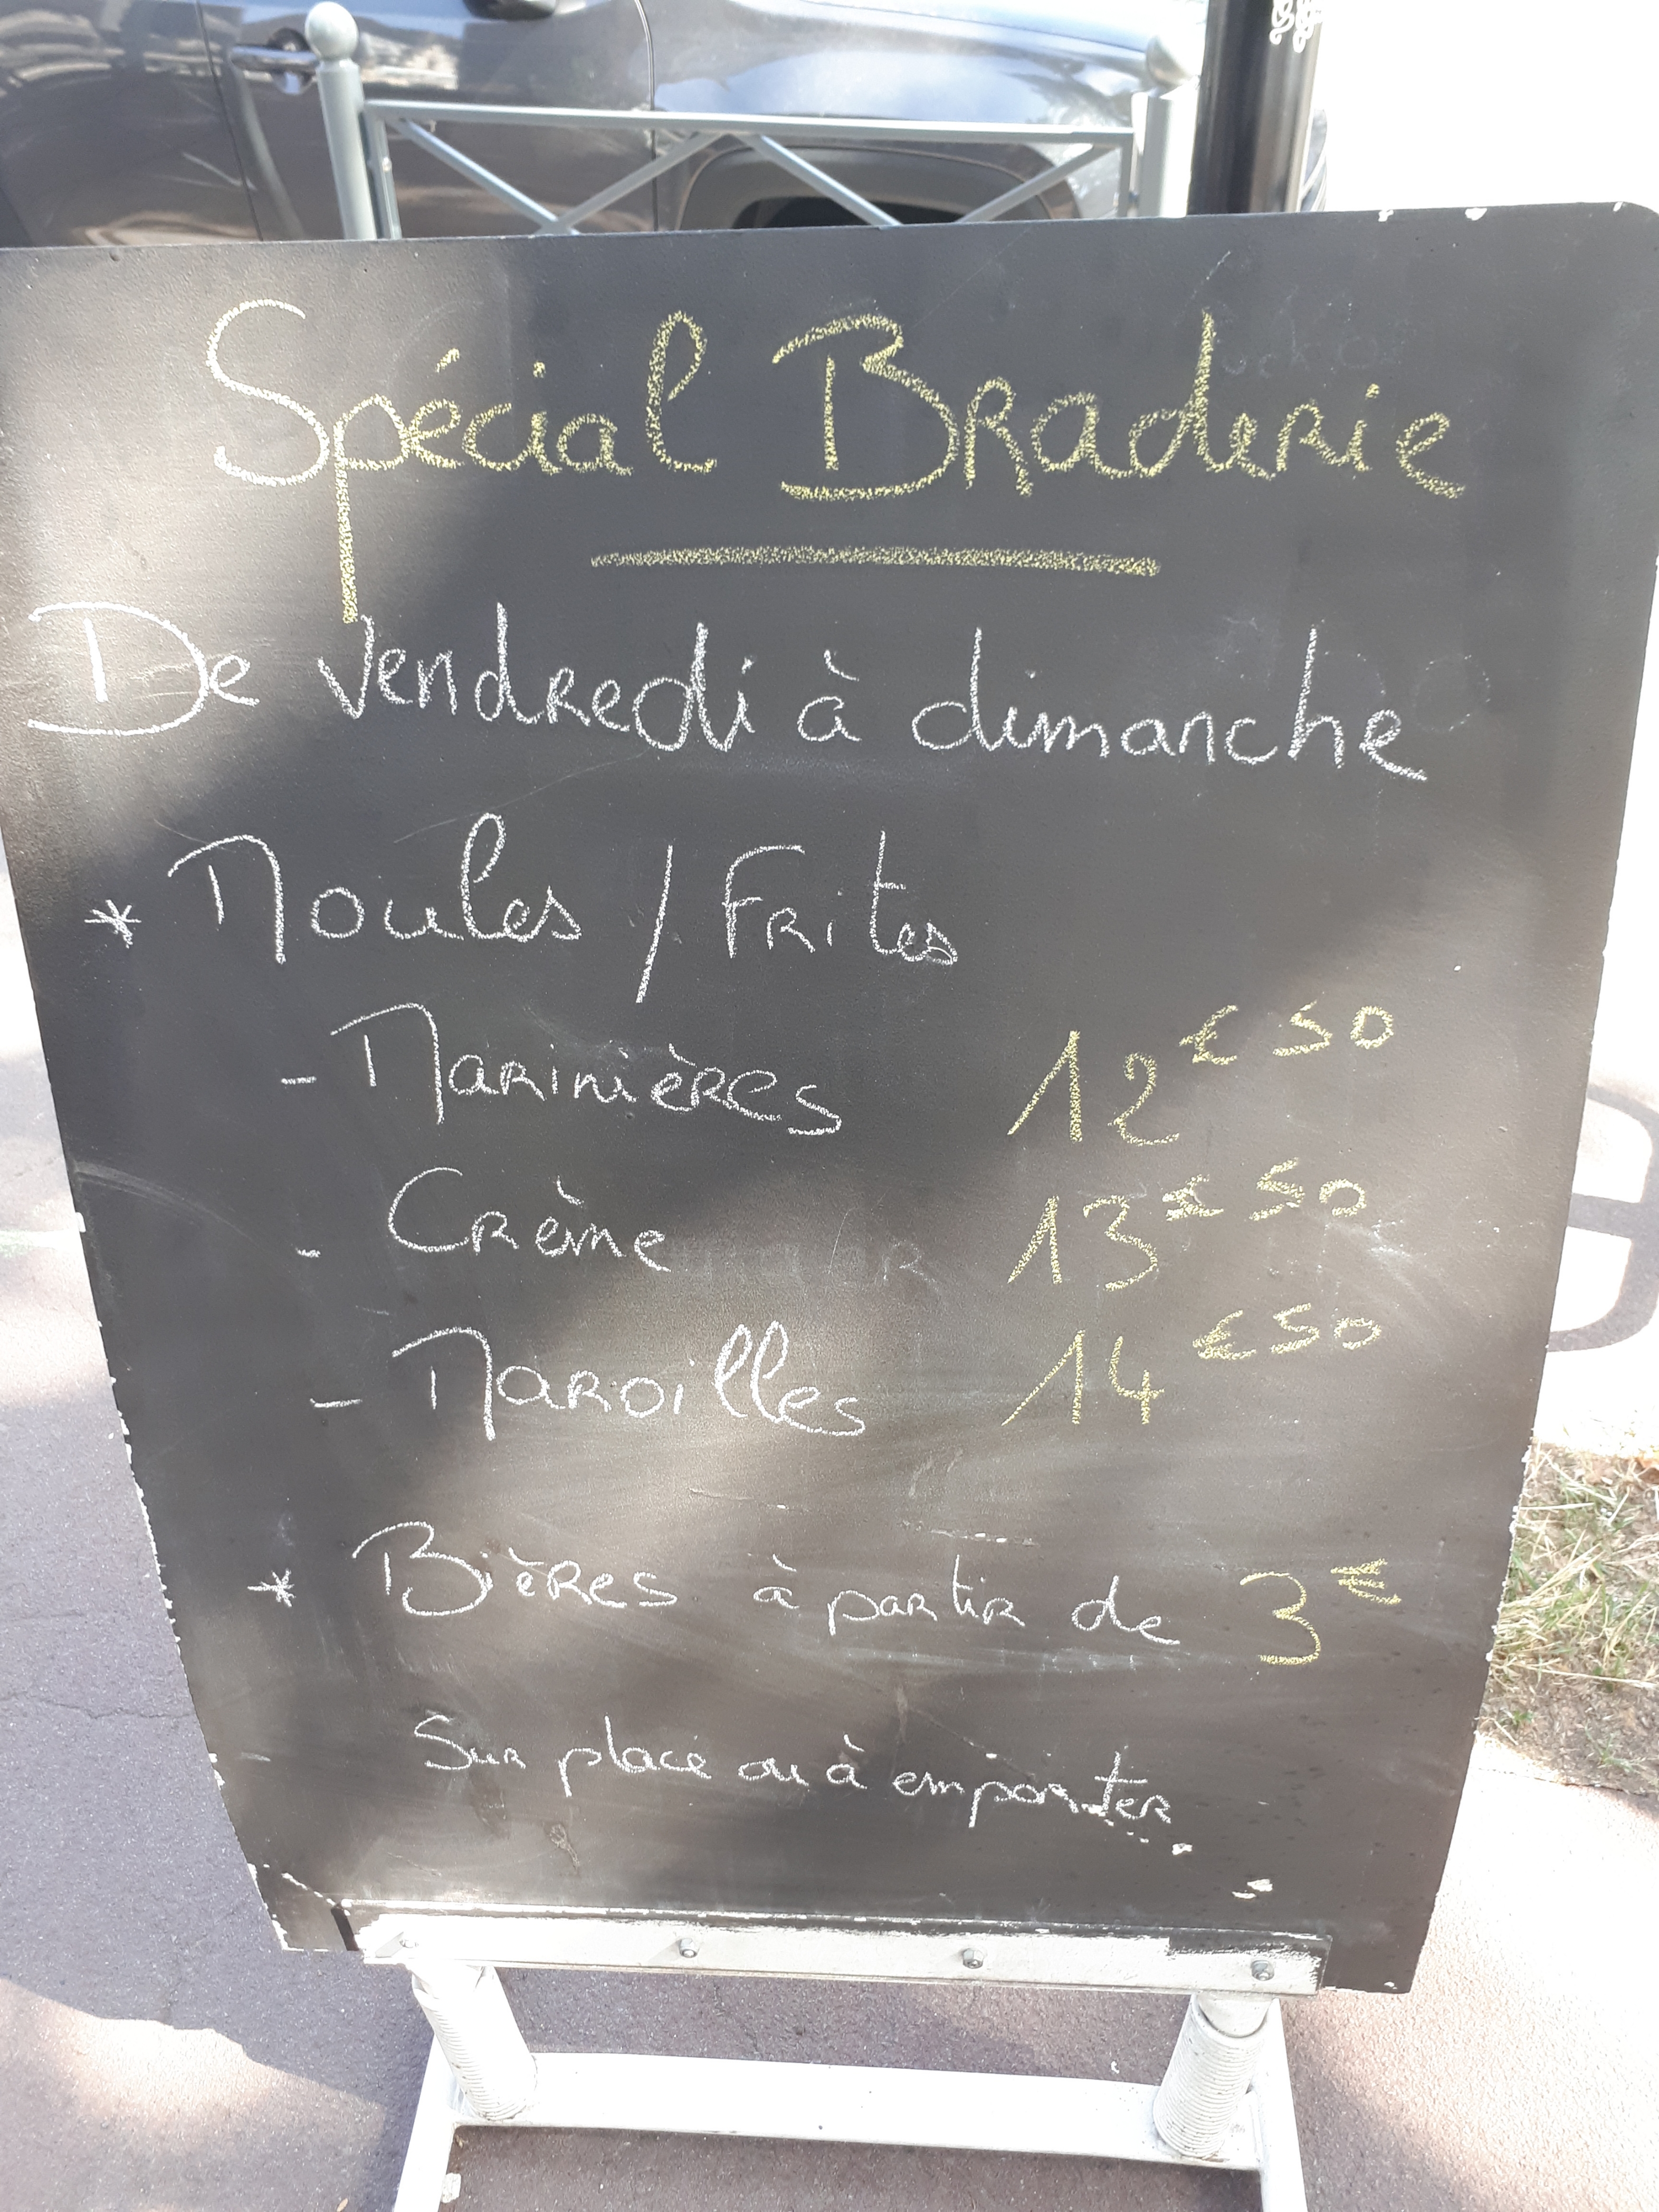 Spécial Braderie
De vendredi à dimanche
* Moules / Frites
- Marinières 12€50
- Crème 13€50
- Maroilles 14€50
* Bières à partir de 3€
Sur place ou à emporter